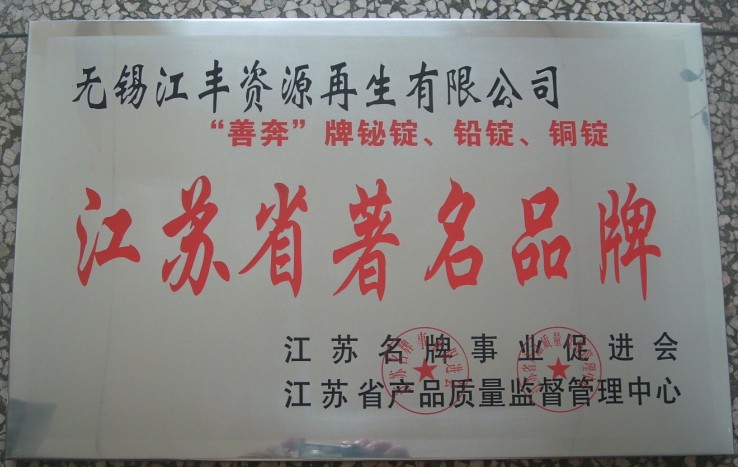 无锡江丰资源再生有限公司
“善奔”牌铋锭、铅锭、铜锭
江苏省著名品牌
江苏名牌事业促进会
江苏省产品质量监督管理中心